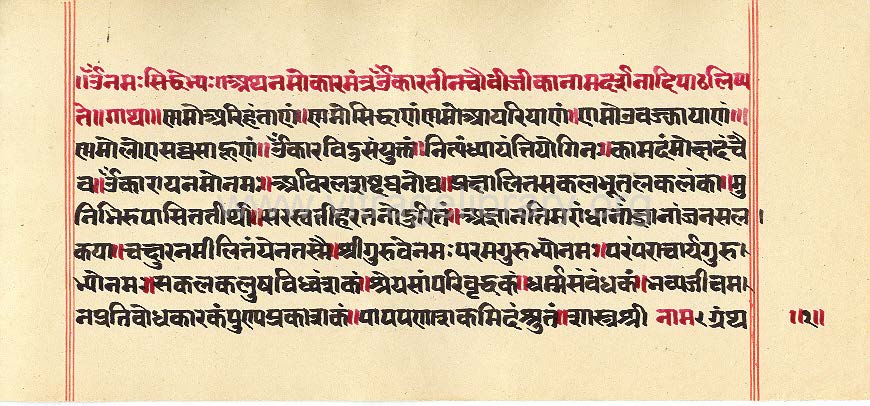 ॥ॐनमःसिद्धेभ्यः॥अथनमोकारमंत्रॐकारतीनचौवीजीकानामदर्शनादिपाठलिष्य
ते॥गाथा॥णमोअरिहंताणं॥णमोसिद्धाणंणमोआयरियाणं॥णमोउवज्झायाणं॥
णमोलोएसव्वसाहूणं॥ॐकारविदुसंयुक्तं॥नित्यंध्यायंत्तियोगिनः॥कामदंमोक्षदंचै
व॥ॐकारायनमोनमः॥अविरलशब्दघनोघ॥प्रक्षालितसकलभूतलकलंका॥मु
निभिरुपासिततीर्था॥सरस्वतीहरतनोदुरितं॥अज्ञानतिमरांधानांज्ञानांजनसल।
कया॥चक्षुरनमीलितंयेनतस्मै॥श्रीगुरुवेनमःपरमगुरुभ्योनमः॥परंपराचार्यगुरु।
भ्योनमः॥सकलकलुषविध्वंशकं॥श्रेयसांपरिवृद्धकं॥धर्म्मसंवंधकं॥नव्यजीवम।
नप्रतिवोधकारकंपुण्यप्रकाशकं॥पापपणाशकमिदंश्रुतं॥शास्त्रश्री नामःग्रंथ
॥२॥
www.vitragelibrary.org